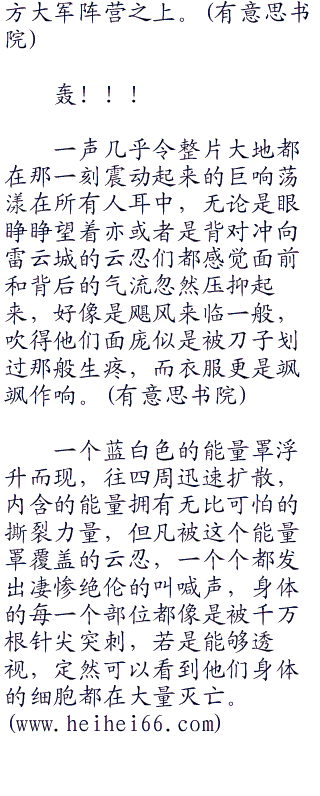 方大军阵营之上。(有意思书
院)
轰！！！
一声几乎令整片大地都
在那一刻震动起来的巨响荡
漾在所有人耳中，无论是眼
睁睁望着亦或者是背对冲向
雷云城的云忍们都感觉面前
和背后的气流忽然压抑起
来，好像是飓风来临一般，
吹得他们面庞似是被刀子划
过那般生疼，而衣服更是飒
飒作响。(有意思书院)
一个蓝白色的能量罩浮
升而现，往四周迅速扩散，
内含的能量拥有无比可怕的
撕裂力量，但凡被这个能量
罩覆盖的云忍，一个个都发
出凄惨绝伦的叫喊声，身体
的每一个部位都像是被千万
根针尖突刺，若是能够透
视，定然可以看到他们身体
的细胞都在大量灭亡。
(www.heihei66.com)